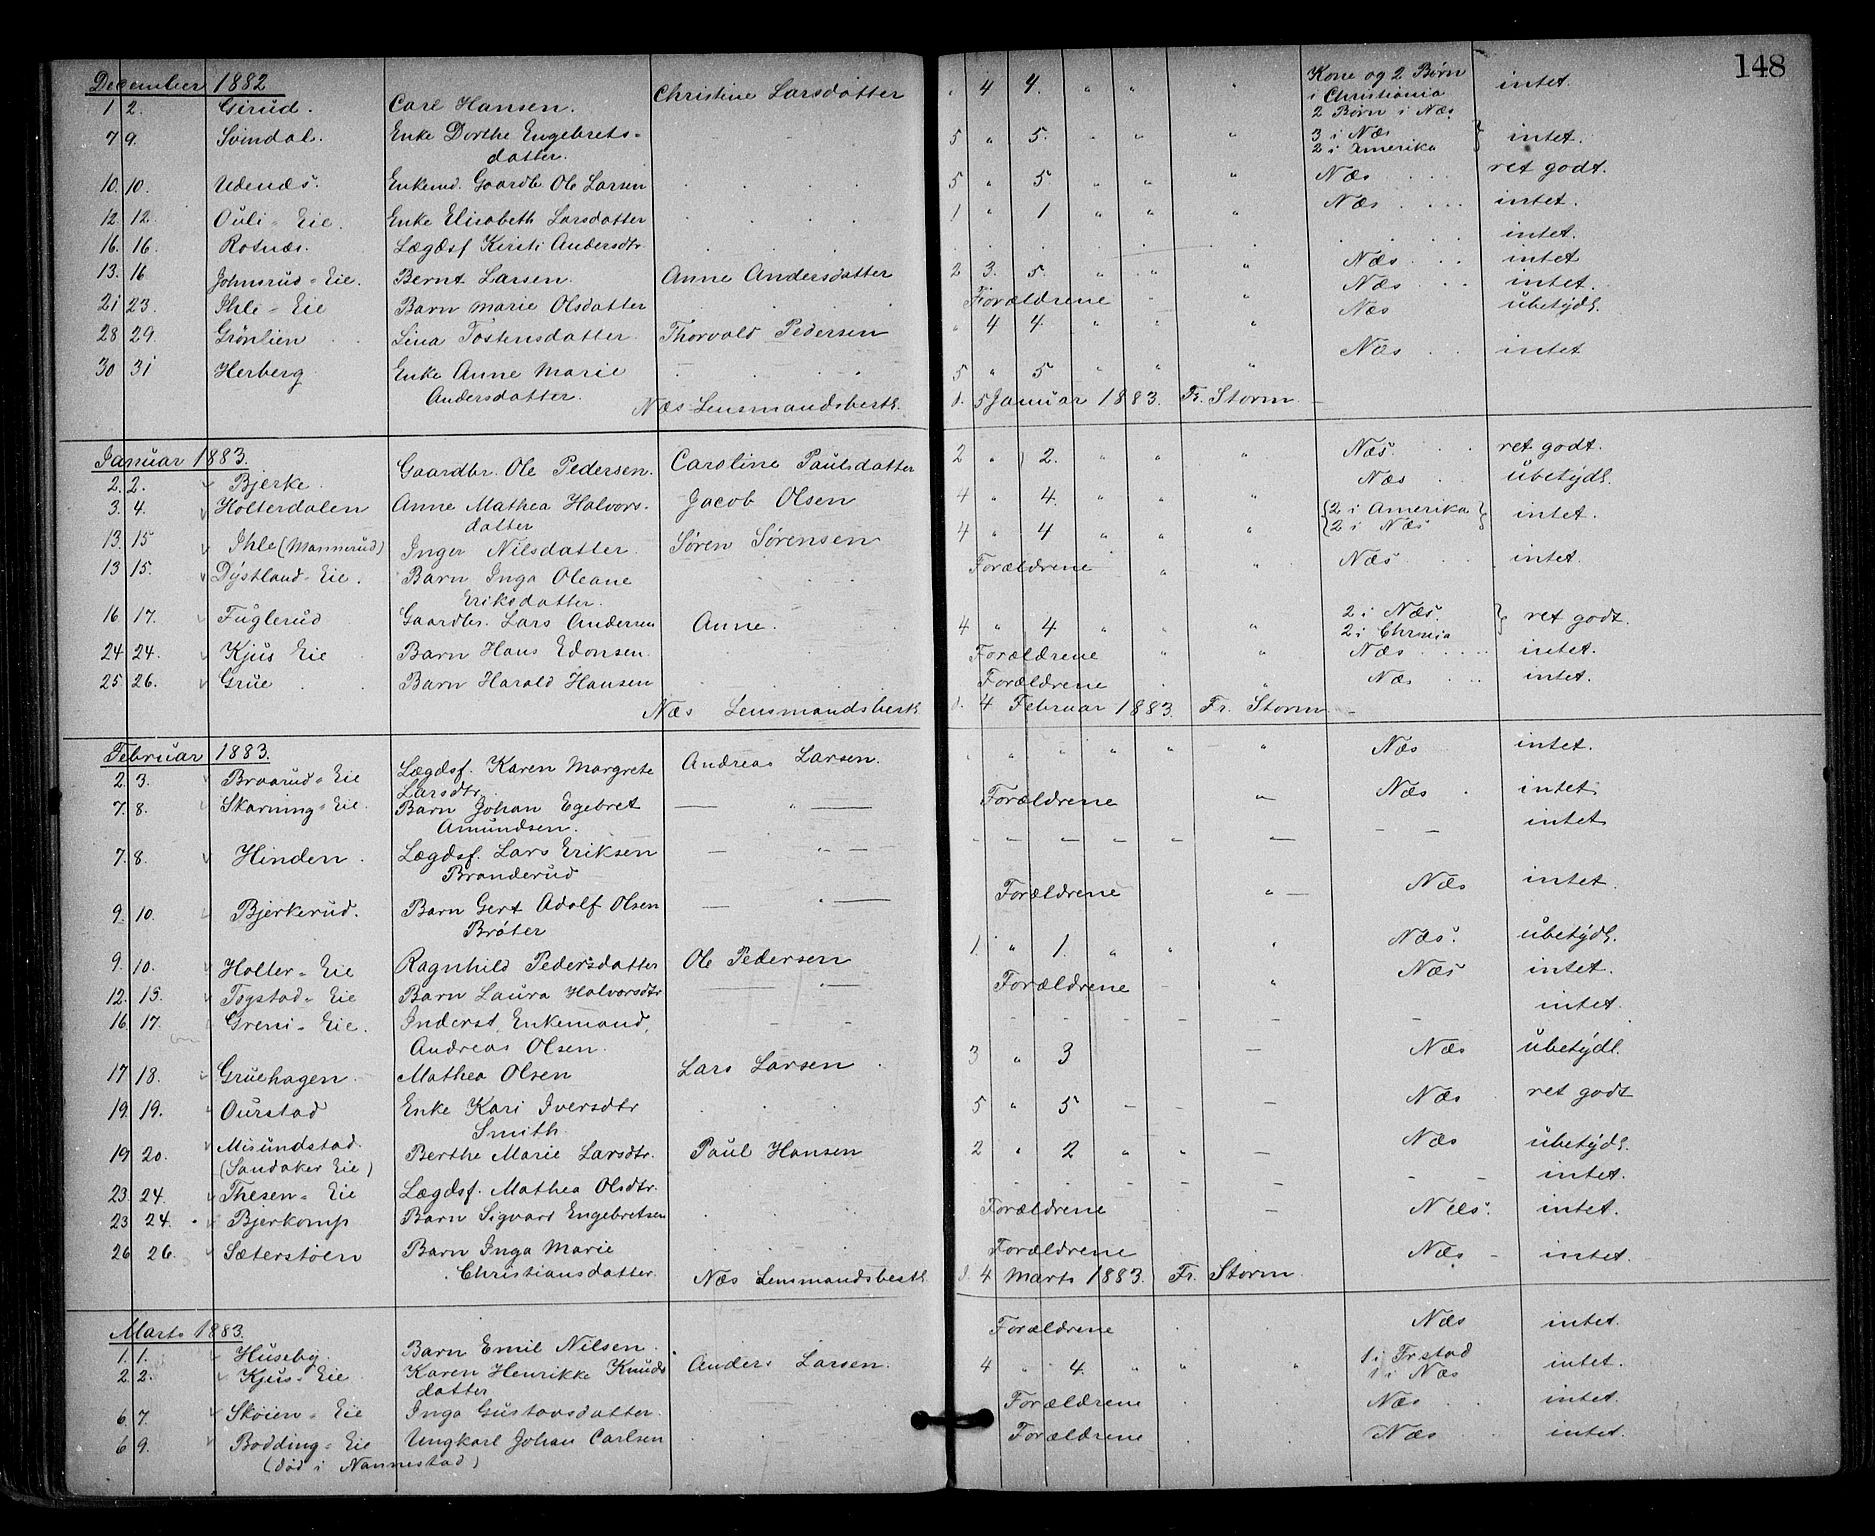 148
December 1882
1 2. Girud. Carl Hansen. Christine Larsdatter " 4 4. " " " Kone og 2 Børn i Christiania intet.
2 Børn i Næs
7 9. Svindal. Enke Dorthe Engebrets= 5 " 5. " " " 3 i Næs } intet.
datter. 2 i Amerika
10. 10. Udenæs. Enkemd. Gaardb. Ole Larsen 5 " 5 " " " Næs ret godt.
12. 12. Ouli=Eie. Enke Elisabeth Larsdatter 1 " 1 " " " Næs intet.
16. 16. Rotnæs. Lægdsf Kirsti Andersdtr. intet.
13. 16 Johnsrud=Eie. Bernt Larsen. Anne Andersdatter 2 3. 5. " " " Næs intet
21 23. Ihle=Eie Barn Marie Olsdatter Forældrene " Næs intet.
28 29. Grønlien Lina Tostensdatter. Thorvald Pedersen " 4 4. " " " Næs ubetydl.
30 31 Herberg Enke Anne Marie 5 " 5 " " " Næs intet
Andersdatter.
Næs Lensmandsbestl. d. 5 Januar 1883. Fr. Storm
Januar 1883.
2. 2. Bjerke Gaardbr. Ole Pedersen. Caroline Paulsdatter 2 " 2. " " " Næs. ret godt.
3. 4. Holterdalen Anne Mathea Halvors- Jacob Olsen 4 " 4. " " " Næs ubetydl.
datter
13. 15 Ihle (Mannerud) Inger Nilsdatter. Søren Sørensen 4 " 4 " " " { 2 i Amerika } intet.
{ 2 i Næs }
13 15. Dystland=Eie. Barn Inga Oleane Forældrene " " Næs intet.
Eriksdatter.
16 17. Fuglerud Gaardbr. Lars Andersen Anne. 4 " 4 " " " 2 i Næs. } ret godt.
2 i Chrnia
24 24. Kjus Eie Barn Hans Edonsen. Forældrene " " Næs intet.
25 26. Grue Barn Harald Hansen Forældrene " Næs intet.
Næs Lensmandsbestl. d. 4 Februar 1883. Fr. Storm
Februar 1883.
2 3. Braarud=Eie Lægdsf. Karen Margrete Andreas Larsen. " " " " " Næs intet.
Larsdtr.
7. 8. Skarning=Eie. Barn Johan Egebret — " — Forældrene " Næs intet
Amundsen.
7. 8. Hinden. Lægdsf. Lars Eriksen — " — — — intet
Branderud
9. 10. Bjerkerud. Barn Gert Adolf Olsen — " — Forældrene " Næs intet.
Bråter
9. 10. Holter=Eie Ragnhild Pedersdatter Ole Pedersen 1 " 1. " " " Næs. ubetydl.
12. 13. Togstad=Eie Barn Laura Halvorsdtr — " — Forældrene " Næs intet.
16. 17. Greni=Eie. Inderst, Enkemand, intet.
Andreas Olsen.
17 18. Gruehagen. Mathea Olsen Lars Larsen 3 " 3 — Næs ubetydl.
19. 19. Ourstad Enke Kari Iversdtr 5 " 5 — — — Næs ret godt
Smith.
19 20. Misundstad. Berthe Marie Larsdtr. Paul Hansen 2 " 2 " " — Næs ubetydl.
(Sandaker Eie)
23. 24. Thesen=Eie Lægdsf. Mathea Olsdtr. — — intet.
23 24. Bjerkomp Barn Sigvard Engebretsen Forældrene — Næs. intet.
26 26. Sæterstøen Barn Inga Marie Forældrene Næs intet.
Christiansdatter.
Næs Lensmandsbestl d. 4 Marts 1883. Fr. Storm.
Marts 1883.
1. 1. Huseby. Barn Emil Nilsen. Forældrene Næs intet.
2. 2. Kjus=Eie Karen Henrikke Knuds Anders Larsen. 4 " 4. " " " 1 i Frstad intet.
datter 1 i Næs
6. 7. Skøien=Eie Inga Gustavsdatter. Forældrene Næs intet.
6 9. Bodding=Eie Ungkarl Johan Carlsen Forældrene Næs intet.
(død i Nannestad)